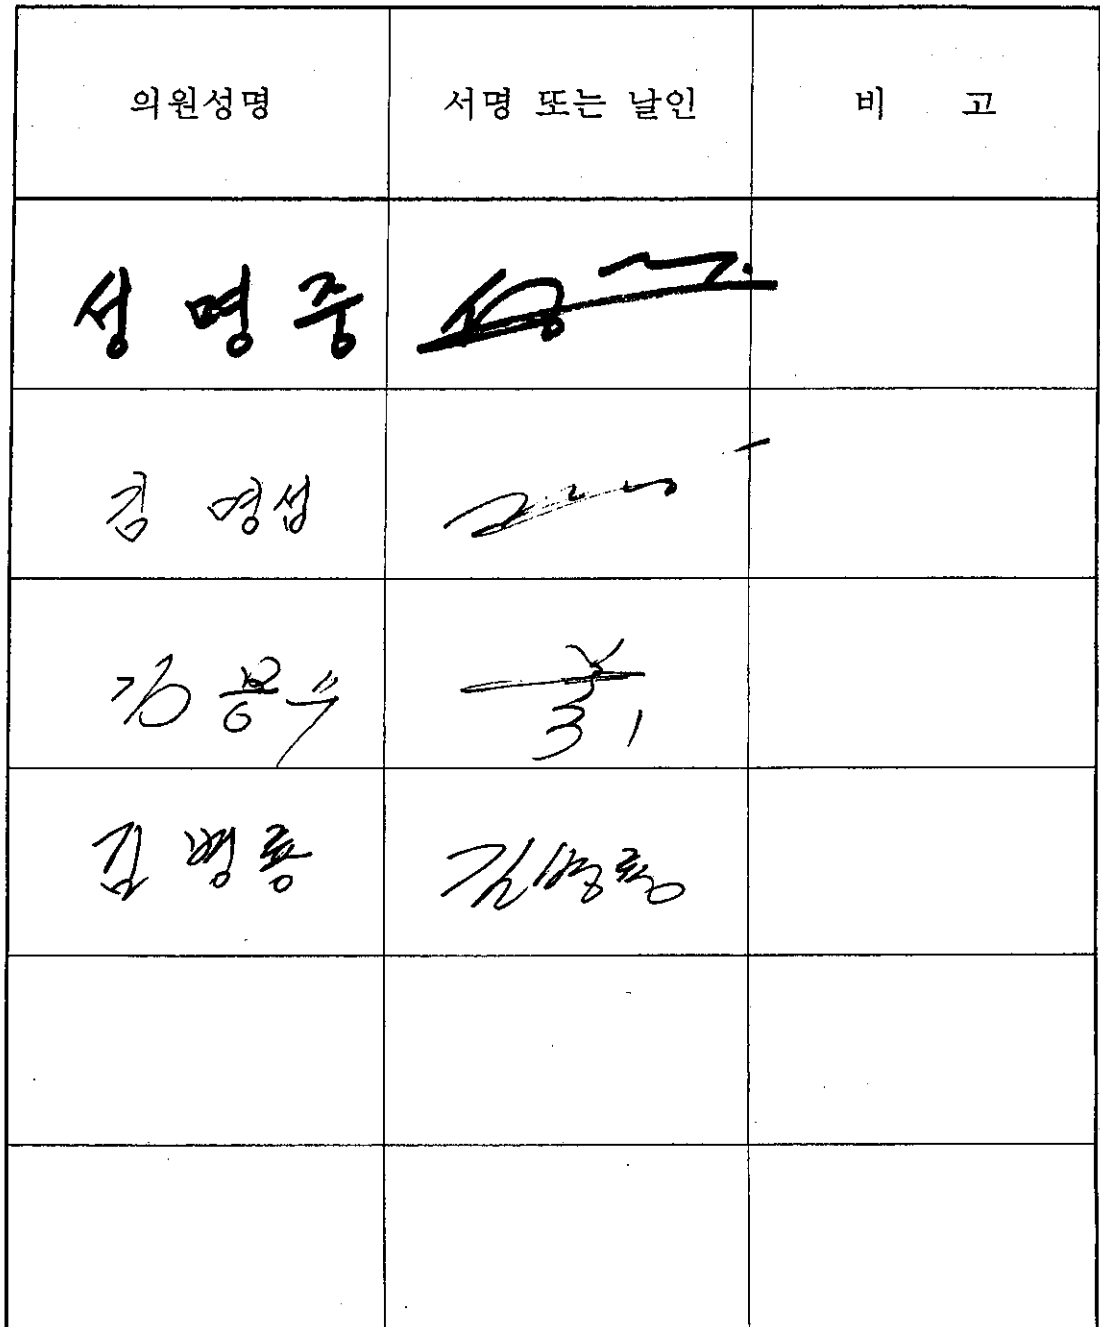 의원성명 서명 또는 날인 비 고
성명중
김영섭
김용수
김병룡 김병룡